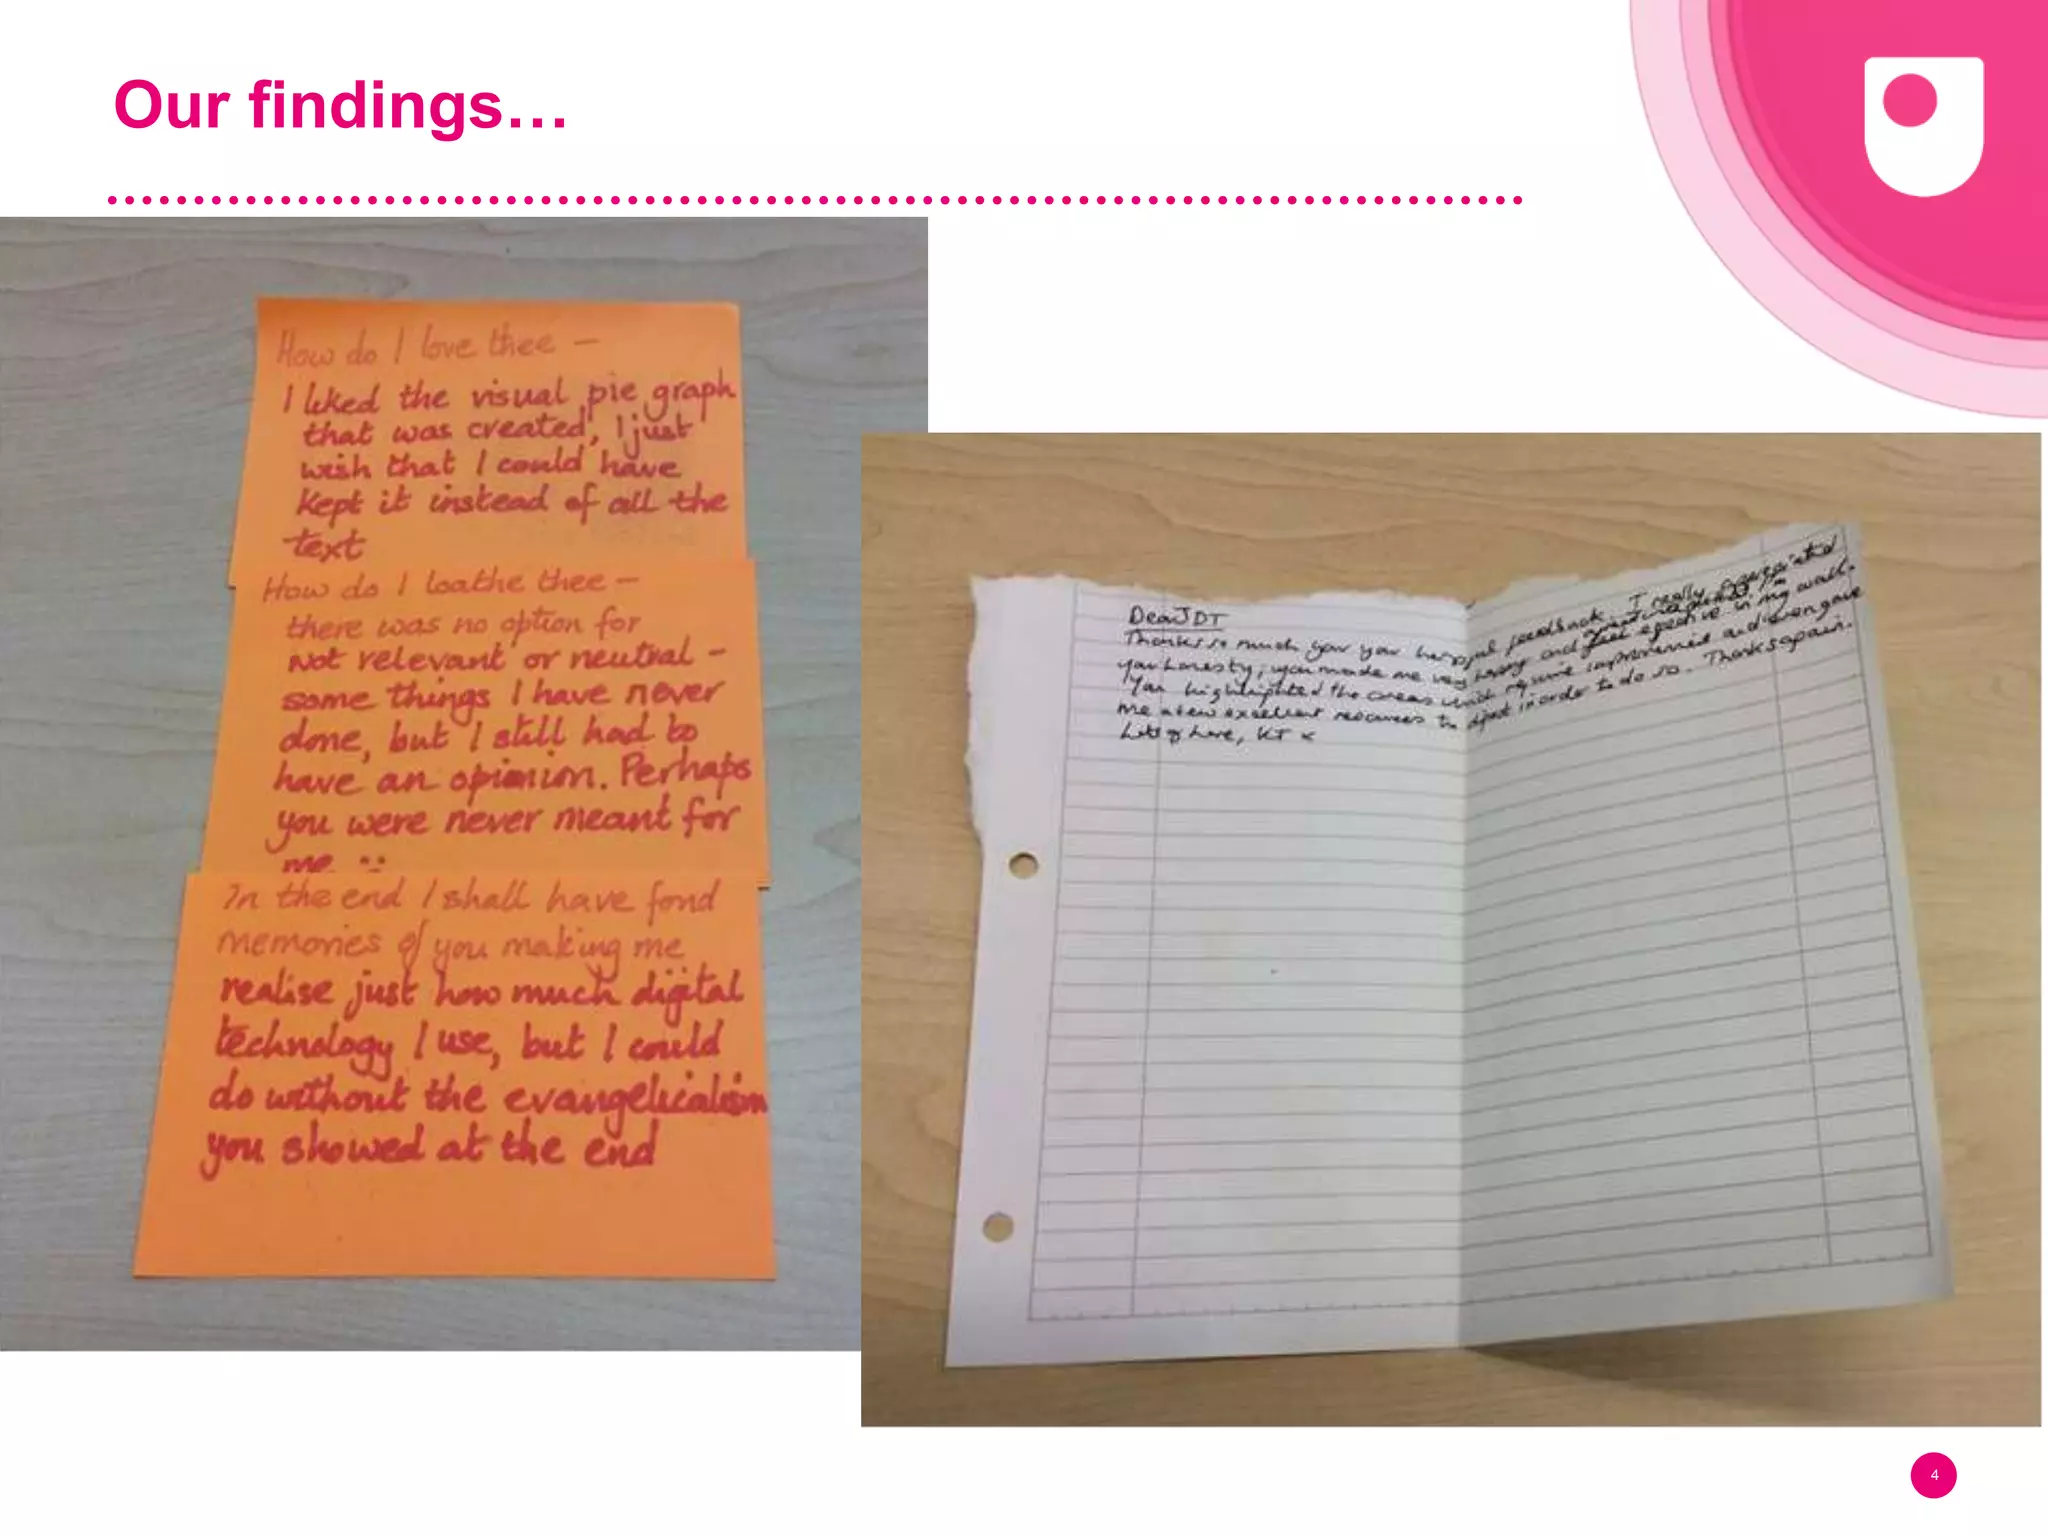 Our findings…
How do I love thee –
I liked the visual pie graph
that was created, I just
wish that I could have
kept it instead of all the
text
How do I loathe thee –
there was no option for
not relevant or neutral –
some things I have never
done, but I still had to
have an opinion. Perhaps
you were never meant for
me
In the end I shall have fond
memories of you making me
realise just how much digital
technology I use, but I could
do without the evangelicalism
you showed at the end
Dear JDT
Thanks so much your feedback. I really appreciated
your honesty; you made me very and effective in my work.
You highlighted the areas which require improvement and even gave
me a few excellent resources to in order to do so. Thanks again.
Lots of love, KT x
4